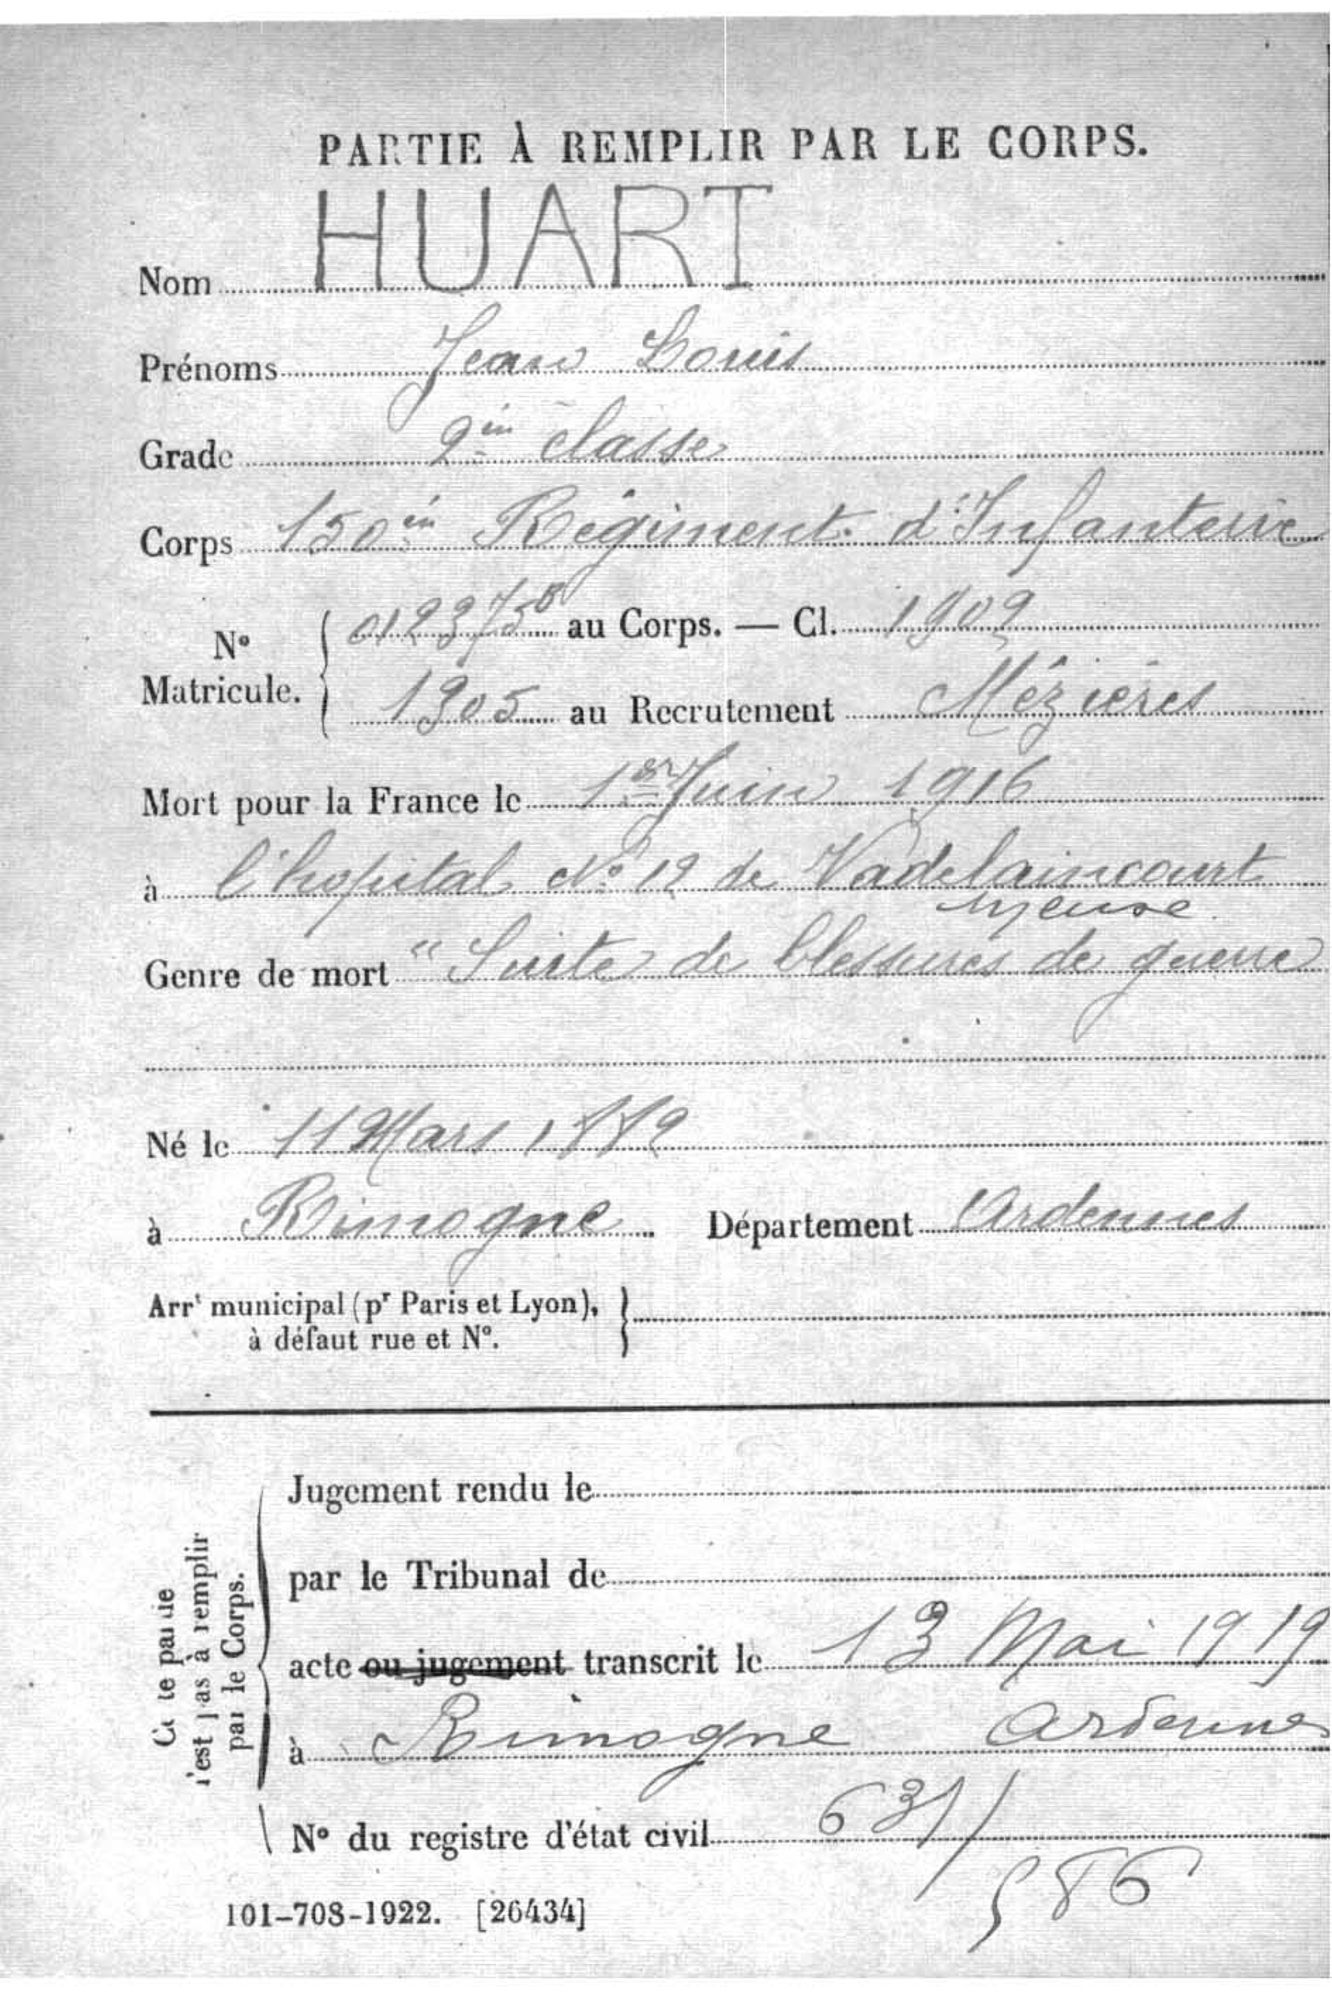 PARTIE À REMPLIR PAR LE CORPS.
Nom HUART
Prénoms Jean Louis
Grade 2èm classe
Corps 150èm Régiment d'Infanterie
N° Matricule. au Corps. — Cl. 1909
1305 au Recrutement Mézières
Mort pour la France le 1er Juin 1916
à l'hopital N° 12 de Vadelaincourt
Meuse
Genre de mort " Suite de blessures de guerre
Né le 11 Mars 1889
à Rimogne Département Ardennes
Arrt municipal (pr Paris et Lyon),
à défaut rue et N°.
Jugement rendu le
par le Tribunal de
acte ou jugement transcrit le 13 Mai 1919
à Rimogne Ardennes
N° du registre d'état civil 631/
586
Ce te partie
n'est pas à remplir
par le Corps.
101-708-1922. [26434]